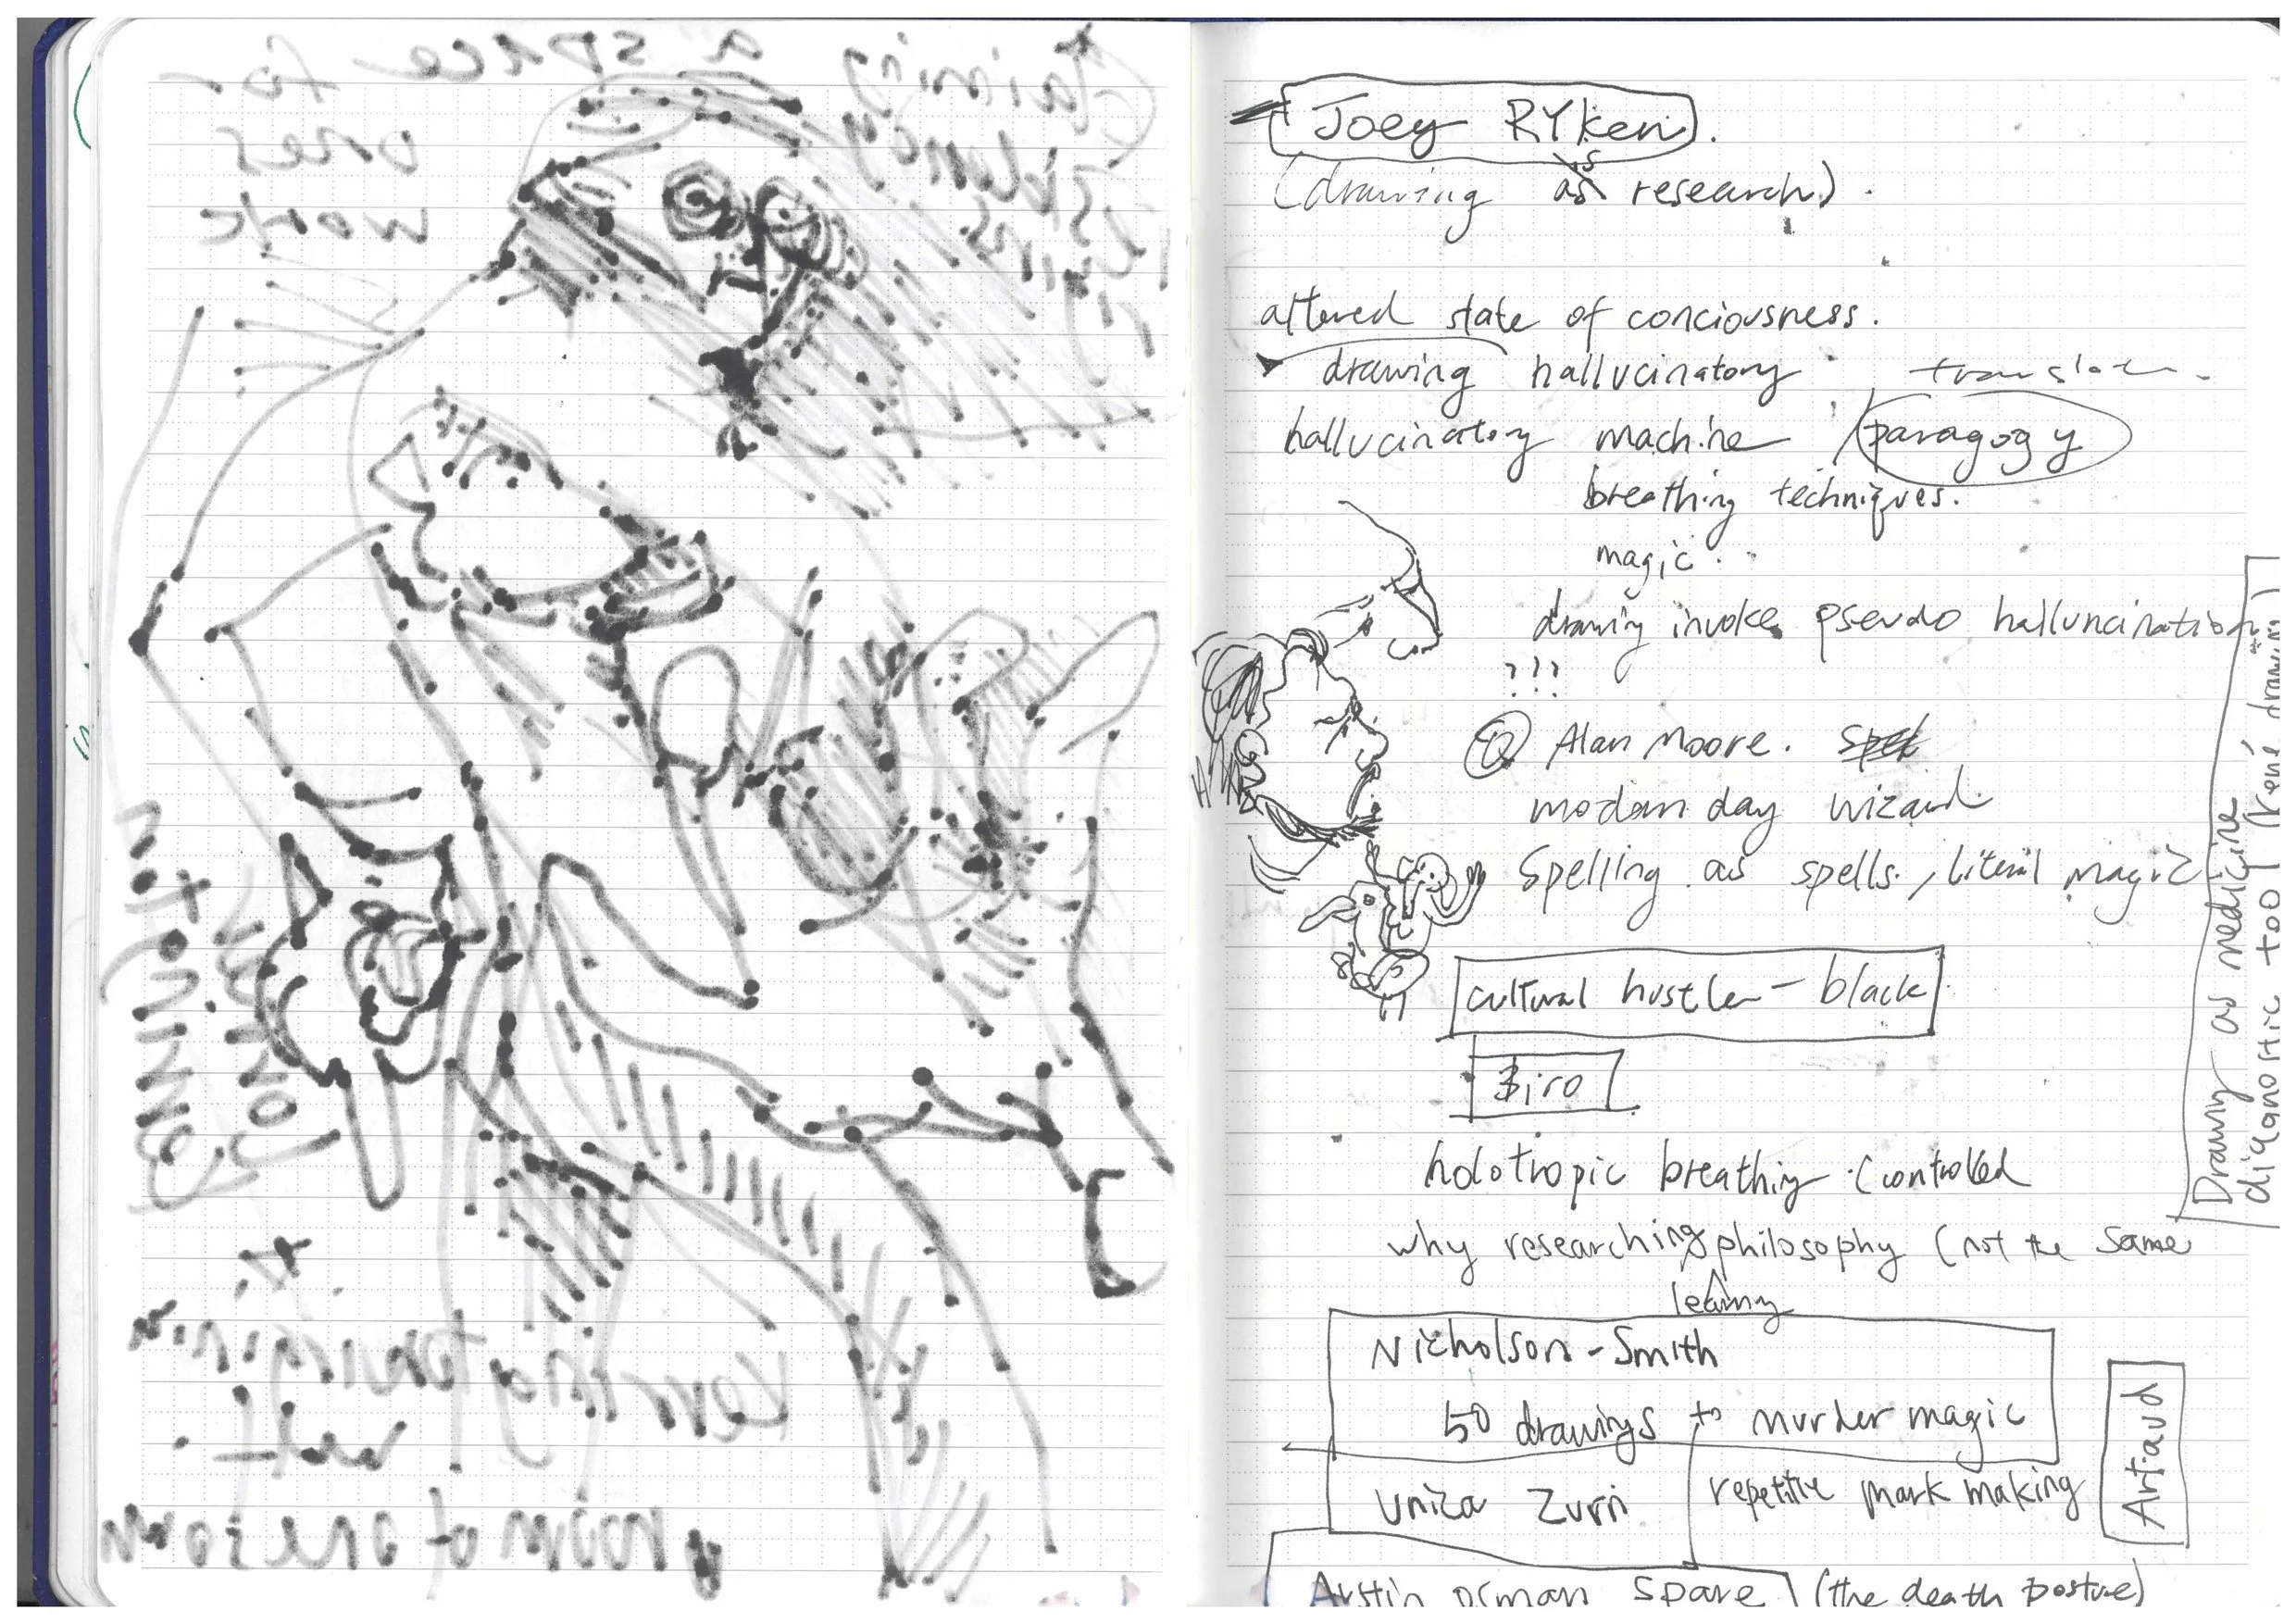 a space for
ones
work
not joining
learning
not
room of ones own
Joey RYken.
(drawing as research).
altered state of conciousness.
drawing hallucinatory
hallucinatory machine / paragogy
breathing techniques.
magic.
drawing invoke pseudo halluncination
???
Alan Moore.
modern day wizard
Spelling as spells, literal magic
cultural hustler - black
Biro
holotropic breathing (controlled
why researching philosophy (not the same
learning
Nicholson-Smith
50 drawings to murder magic
Unica Zurn
repetitive mark making
Artaud
Austin osman Spare (the death posture)
Drawing as medicine
diganostic tool (René drawing)